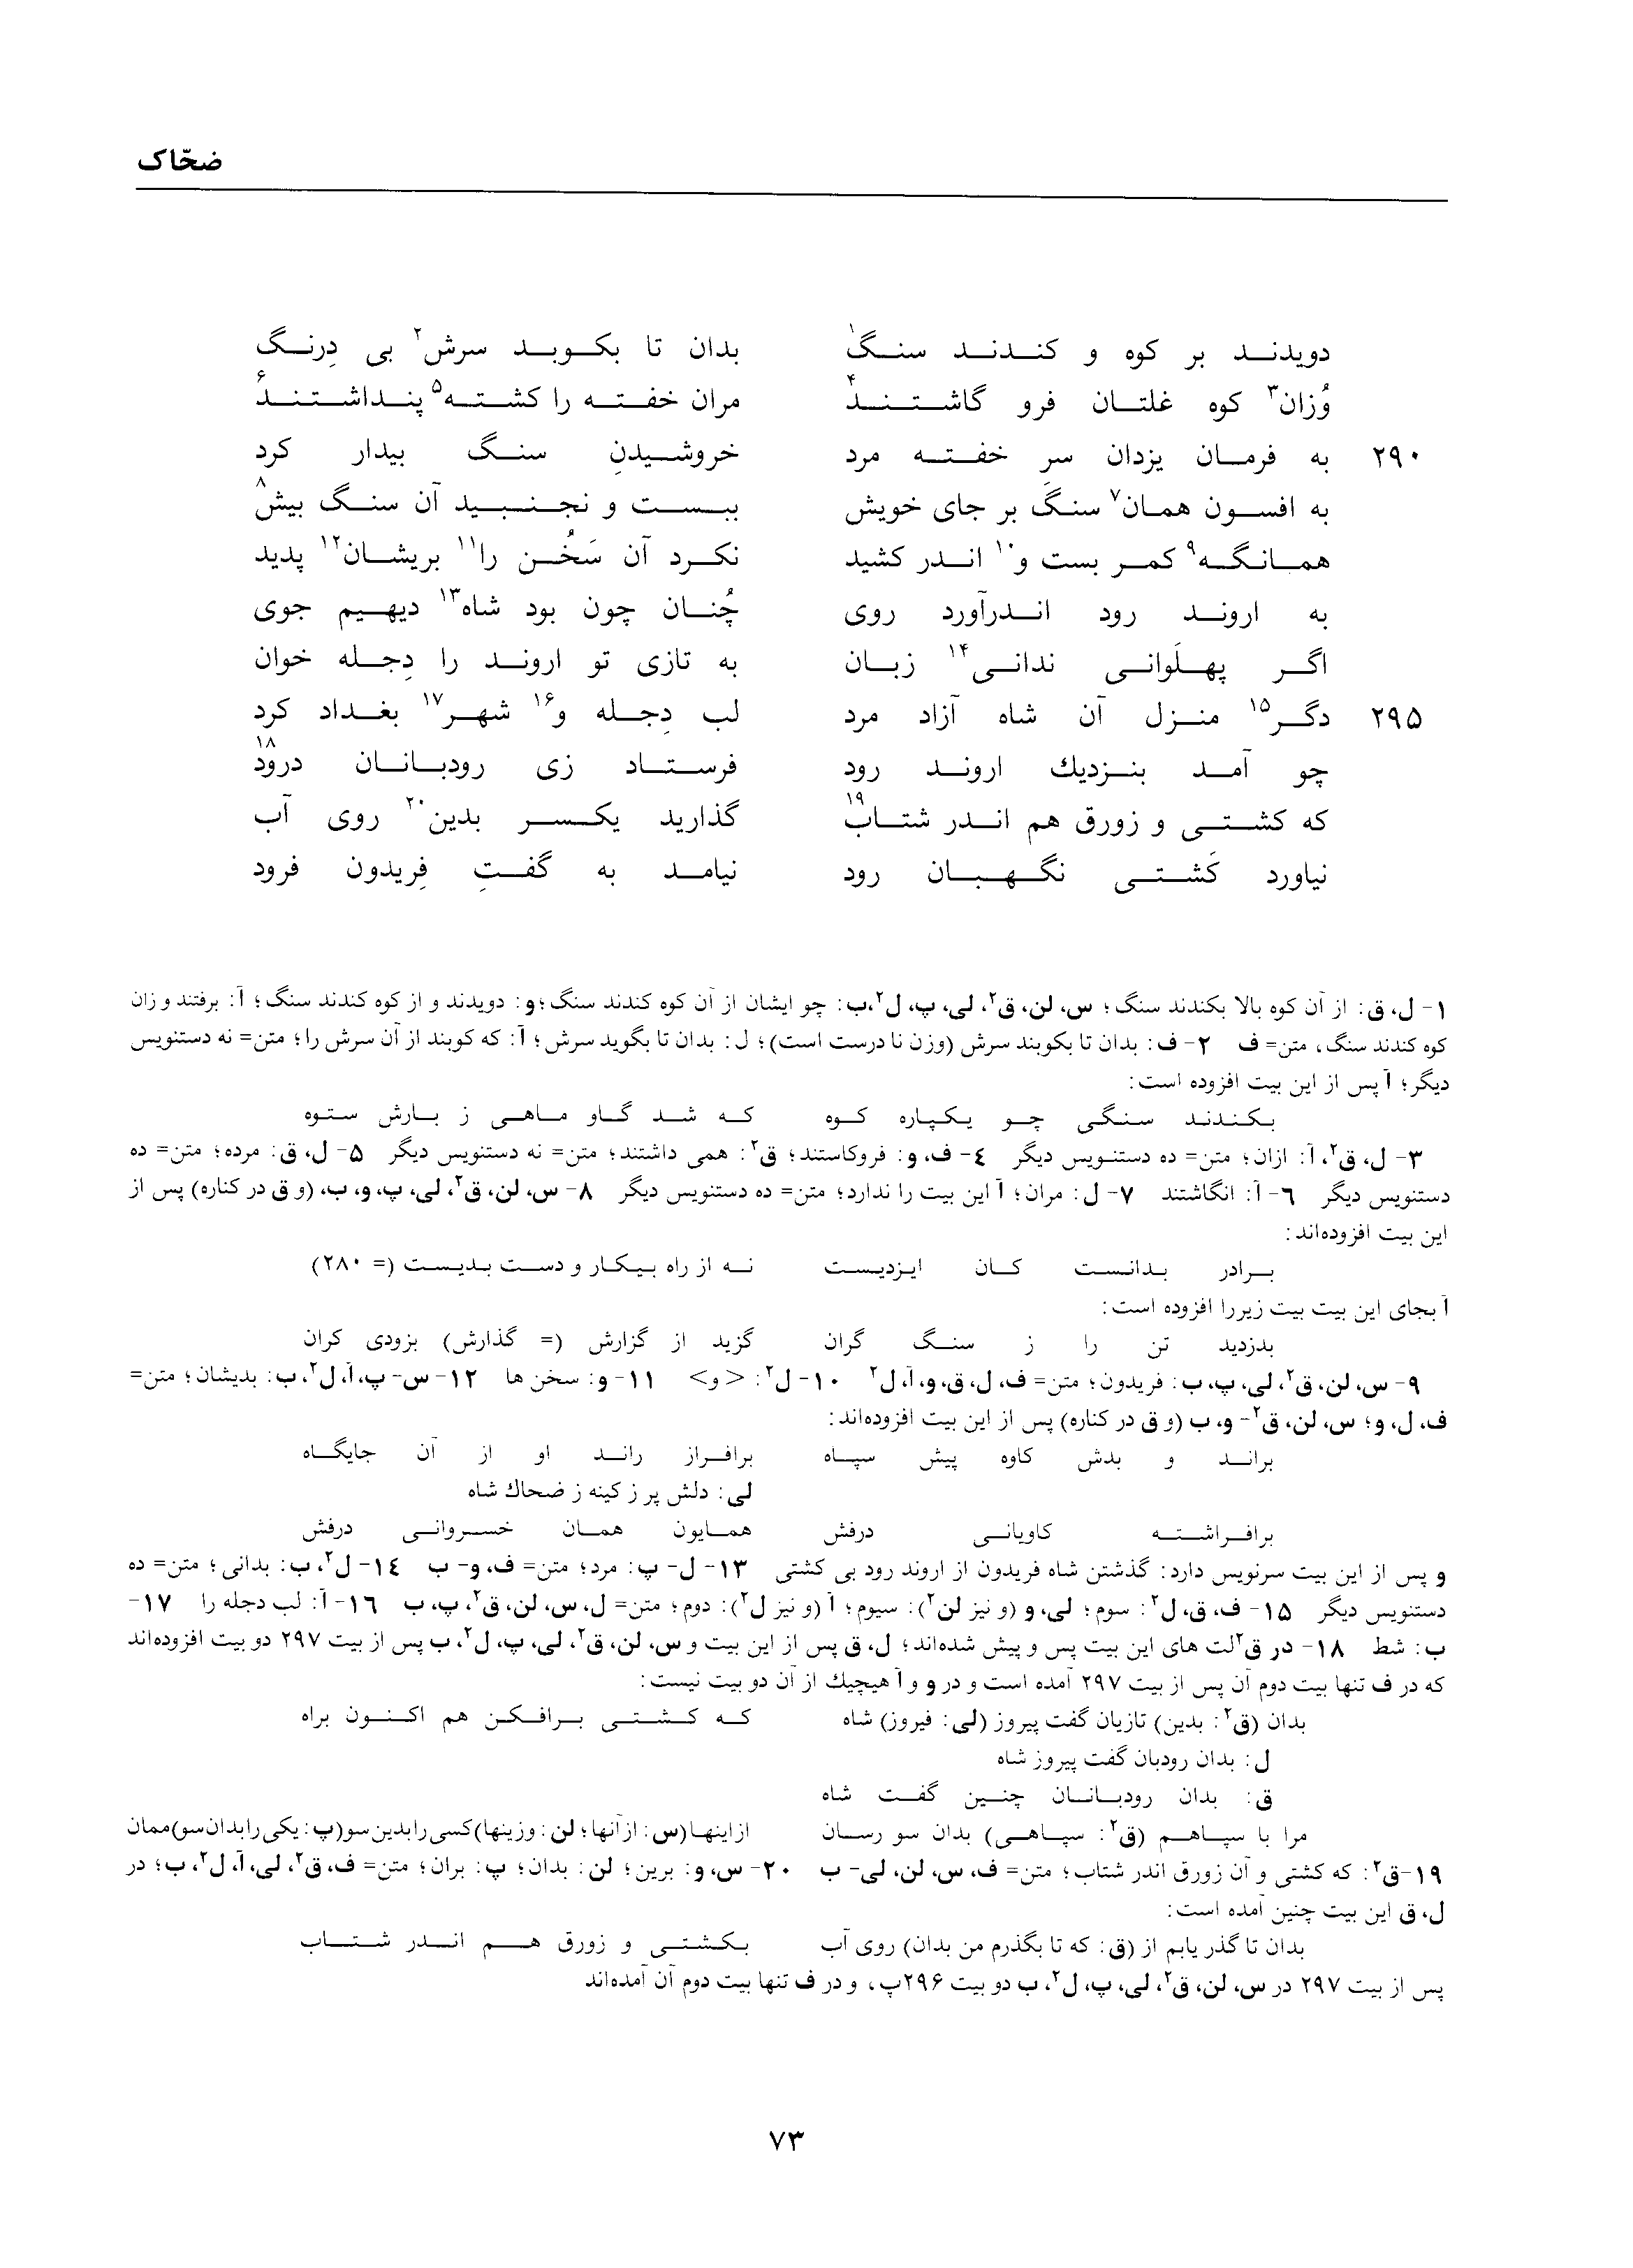 ضحّاک
دویدنـد بر کوه و کنـدنـد سنـگ۱ بدان تا بکـوبـد سرش۲ بی دِرنـگ
وُزان۳ کوه غلتـان فرو گاشتـنـد۴ مران خفـتـه را کشـتـه۵ پنـداشـتـنـد۶
۲۹۰ به فرمـان یزدان سرِ خفـتـه مرد خروشـیدنِ سنـگ بیدار کرد
به افسـون همـان۷ سنگ بر جای خویش ببـسـت و نجـنـبـید آن سنـگ بیش۸
همـانـگـه۹ کمـر بست و۱۰ انـدر کشید نکـرد آن سَخُـن را۱۱ بریشـان۱۲ پدید
به ارونـد رود انـدرآورد روی چُنـان چون بود شاه۱۳ دیهـیم جوی
اگـر پهـلَوانـی ندانـی۱۴ زبـان به تازی تو ارونـد را دِجـلـه خوان
۲۹۵ دگـر۱۵ منـزل آن شاه آزاد مرد لب دِجـلـه و۱۶ شهـر۱۷ بغـداد کرد
چو آمـد بنـزدیك ارونـد رود فرسـتـاد زی رودبـانـان درود۱۸
که کشـتـی و زورق هم انـدر شتـاب۱۹ گذارید یکـسـر بدین۲۰ روی آب
نیاورد کَشـتـی نگـهـبـان رود نیامـد به گفـتِ فِریدون فرود
۱- ل، ق: از آن کوه بالا بکندند سنگ؛ س، لن، ق۲، لی، پ، ل۲،ب: چو ایشان از آن کوه کندند سنگ؛و: دویدند و از کوه کندند سنگ؛ آ: برفتند و زان
کوه کندند سنگ، متن= ف ۲- ف: بدان تا بکوبند سرش (وزن نا درست است)؛ ل: بدان تا بگوید سرش؛ آ: که کوبند از آن سرش را؛ متن= نه دستنویس
دیگر؛ آ پس از این بیت افزوده است:
بکـنـدنـد سنـگـی چـو یـکـپـاره کـوه کـه شـد گـاو مـاهـی ز بـارش ستـوه
۳- ل، ق۲، آ: ازان؛ متن= ده دستنـویس دیگر ۴- ف، و: فروکاستند؛ ق۲: همی داشتند؛ متن= نه دستنویس دیگر ۵- ل، ق: مرده؛ متن= ده
دستنویس دیگر ۶- آ: انگاشتند ۷- ل: مران؛ آ این بیت را ندارد؛ متن= ده دستنویس دیگر ۸- س، لن، ق۲، لی، پ، و، ب، (و ق در کناره) پس از
این بیت افزوده‌اند:
بـرادر بـدانـسـت کـان ایـزدیـسـت نـه از راه بیـکـار و دسـت بـدیـسـت (= ۲۸۰)
آ بجای این بیت بیت زیررا افزوده است:
بدزدید تن را ز سنـگ گران گزید از گزارش (= گذارش) بزودی کران
۹- س، لن، ق۲، لی، پ، ب: فریدون؛ متن= ف، ل، ق، و، آ، ل۲ ۱۰- ل۲: <و> ۱۱- و: سخن ها ۱۲- س- پ، آ، ل۲، ب: بدیشان؛ متن=
ف، ل، و؛ س، لن، ق۲- و، ب (و ق در کناره) پس از این بیت افزوده‌اند:
برانـد و بدش کاوه پیش سپـاه برافـراز رانـد او از آن جایگـاه
لی: دلش پر ز کینه ز ضحاك شاه
برافـراشـتـه کاویانـی درفش همـایون همـان خسـروانـی درفش
و پس از این بیت سرنویس دارد: گذشتن شاه فریدون از اروند رود بی کشتی ۱۳- ل- پ: مرد؛ متن= ف، و- ب ۱۴- ل۲، ب: بدانی؛ متن= ده
دستنویس دیگر ۱۵- ف، ق، ل۲: سوم؛ لی، و (و نیز لن۲): سیوم؛ آ (و نیز ل۳): دوم؛ متن= ل، س، لن، ق۲، پ، ب ۱۶- آ: لب دجله را ۱۷-
ب: شط ۱۸- در ق۲لت های این بیت پس و پیش شده‌اند؛ ل، ق پس از این بیت و س، لن، ق۲، لی، پ، ل۲، ب پس از بیت ۲۹۷ دو بیت افزوده‌اند
که در ف تنها بیت دوم آن پس از بیت ۲۹۷ آمده است و در و و آ هیچیك از آن دو بیت نیست:
بدان (ق۲: بدین) تازیان گفت پیروز (لی: فیروز) شاه کـه کـشـتـی بـرافـکـن هـم اکـنـون براه
ل: بدان رودبان گفت پیروز شاه
ق: بدان رودبـانـان چنـین گفـت شاه
مرا با سپـاهـم (ق۲: سپـاهی) بدان سو رسـان ازاینهـا(س: ازآنها؛ لن: وزینها)کسی رابدین‌سو(پ: یکی رابدان‌سو)ممان
۱۹-ق۲: که کشتی و آن زورق اندر شتاب؛ متن= ف، س، لن، لی- ب ۲۰- س، و: برین؛ لن: بدان؛ پ: بران؛ متن= ف، ق۲، لی، آ، ل۲، ب؛ در
ل، ق این بیت چنین آمده است:
بدان تا گذر یابم از (ق: که تا بگذرم من بدان) روی آب بـکـشـتـی و زورق هـم انـدر شـتـاب
پس از بیت ۲۹۷ در س، لن، ق۲، لی، پ، ل۲، ب دو بیت ۲۹۶پ، و در ف تنها بیت دوم آن آمده‌اند
۷۳